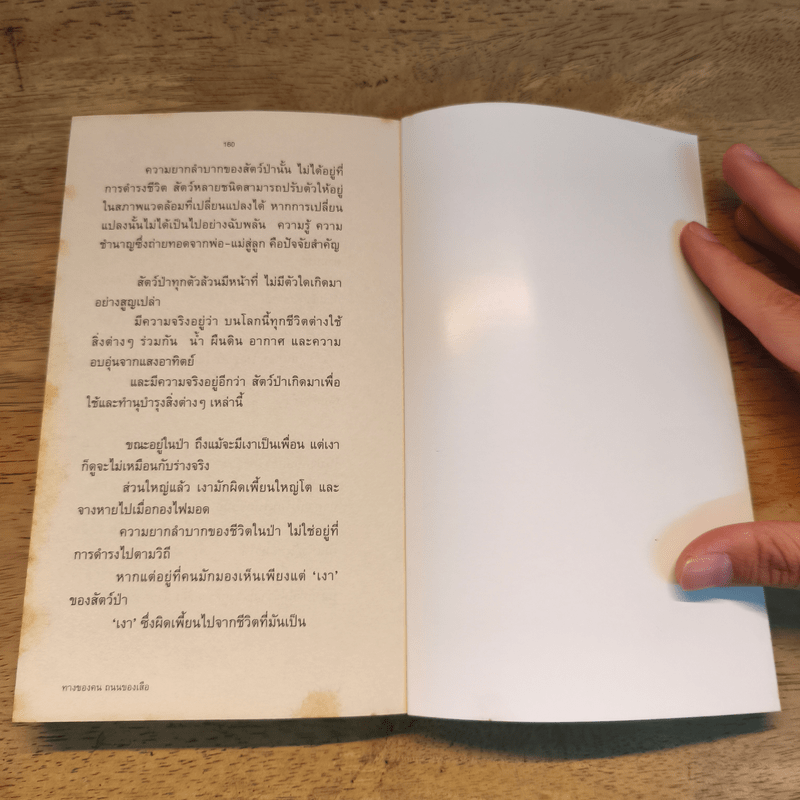 160
ความยากลำบากของสัตว์ป่านั้น ไม่ได้อยู่ที่
การดำรงชีวิต สัตว์หลายชนิดสามารถปรับตัวให้อยู่
ในสภาพแวดล้อมที่เปลี่ยนแปลงได้ หากการเปลี่ยน
แปลงนั้นไม่ได้เป็นไปอย่างฉับพลัน ความรู้ ความ
ชำนาญซึ่งถ่ายทอดจากพ่อ-แม่สู่ลูก คือปัจจัยสำคัญ
สัตว์ป่าทุกตัวล้วนมีหน้าที่ ไม่มีตัวใดเกิดมา
อย่างสูญเปล่า
มีความจริงอยู่ว่า บนโลกนี้ทุกชีวิตต่างใช้
สิ่งต่างๆ ร่วมกัน น้ำ ผืนดิน อากาศ และความ
อบอุ่นจากแสงอาทิตย์
และมีความจริงอยู่อีกว่า สัตว์ป่าเกิดมาเพื่อ
ใช้และทำนุบำรุงสิ่งต่างๆ เหล่านี้
ขณะอยู่ในป่า ถึงแม้จะมีเงาเป็นเพื่อน แต่เงา
ก็ดูจะไม่เหมือนกับร่างจริง
ส่วนใหญ่แล้ว เงามักผิดเพี้ยนใหญ่โต และ
จางหายไปเมื่อกองไฟมอด
ความยากลำบากของชีวิตในป่า ไม่ใช่อยู่ที่
การดำรงไปตามวิถี
หากแต่อยู่ที่คนมักมองเห็นเพียงแต่ ‘เงา’
ของสัตว์ป่า
‘เงา’ ซึ่งผิดเพี้ยนไปจากชีวิตที่มันเป็น
ทางของคน ถนนของเสือ